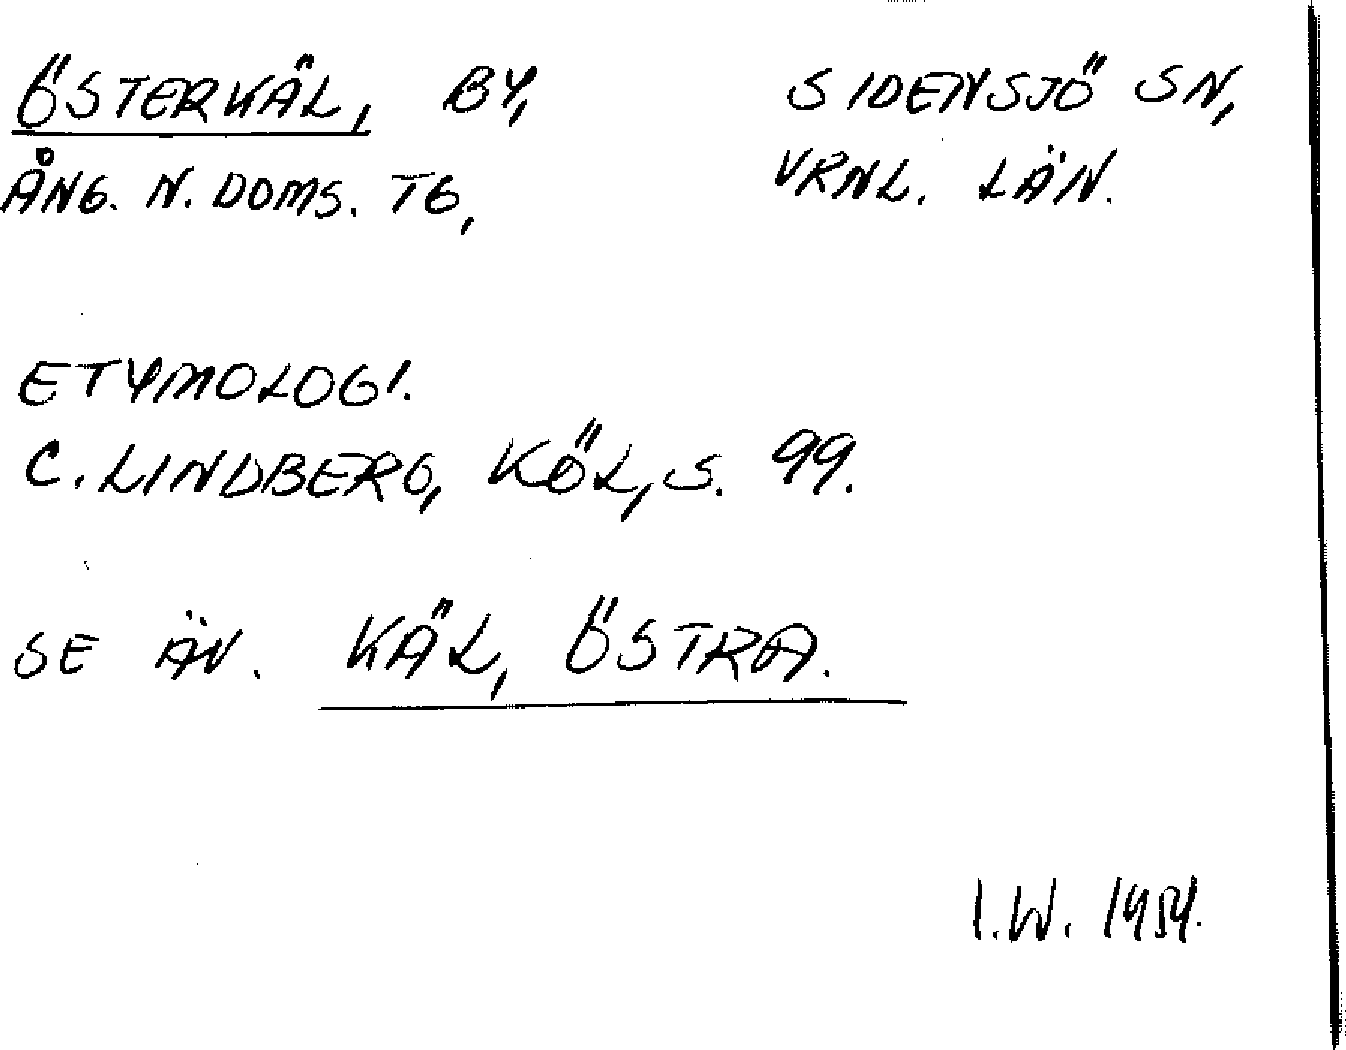 ÖSTERKÄL, BY, SIDENSJÖ SN,
ÅNG. N. DOMS. TG, VRNL. LÄN.
ETYMOLOGI.
C. LINDBERG, KÖL, S. 99.
SE ÄV. KÄL, ÖSTRA.
I.W.